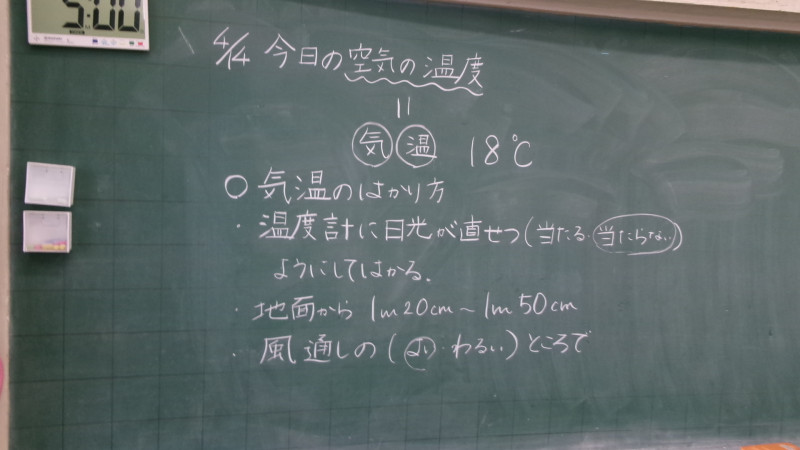 5:00
4/4 今日の空気の温度
=
気温 18℃
○ 気温のはかり方
・温度計に日光が直せつ(当たる・当たらない)
ようにしてはかる.
・地面から 1m20cm～1m50cm
・風通しの(よい・わるい)ところで